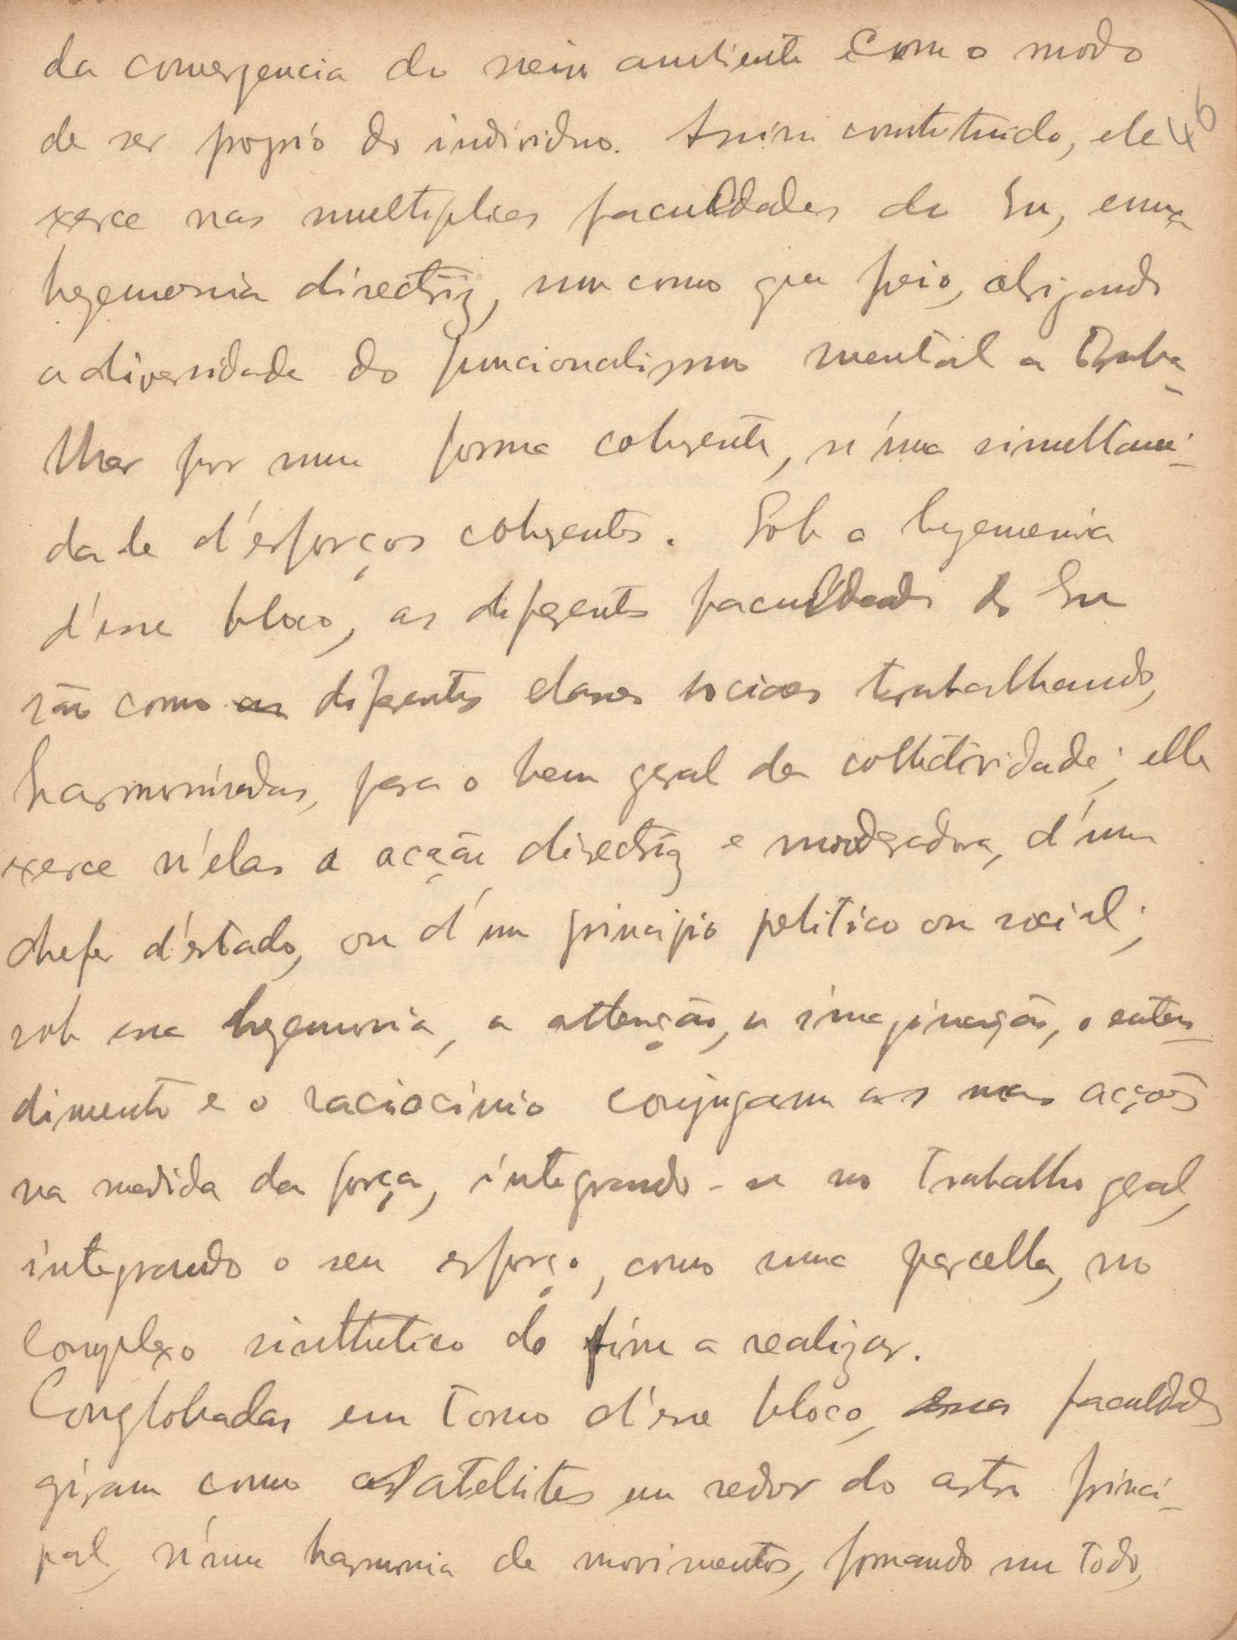 da convergencia do meio ambiente com o modo
de ser proprio do individuo. Assim constituido, ele
46
exerce nas multiplices faculdades do Eu, uma
hegemonia directriz, um como que freio, obrigando
a diversidade do funcionalismo mental a traba-
lhar por uma forma coherente, n'uma simultanei-
dade d'esforços coherentes. Sob a hegemonia
d'esse bloco, as diferentes faculdades do Eu
são como as diferentes classes sociaes trabalhando,
harmonisadas, para o bem geral da collectividade; elle
exerce n'elas a acção directriz e moderadora, d'um
chefe d'estado, ou d'um principio politico ou social;
sob essa hegemonia, a attenção, a imaginação, o enten-
dimento e o raciocinio conjugam as suas acções
na medida da força, integrando-se no trabalho geral,
integrando o seu esforço, como uma parcella, no
complexo sinthetico do fim a realizar.
Conglobadas em torno d'esse bloco, essas faculdades
giram como satelites em redor do astro princi-
pal, n'uma harmonia de movimentos, formando um todo,